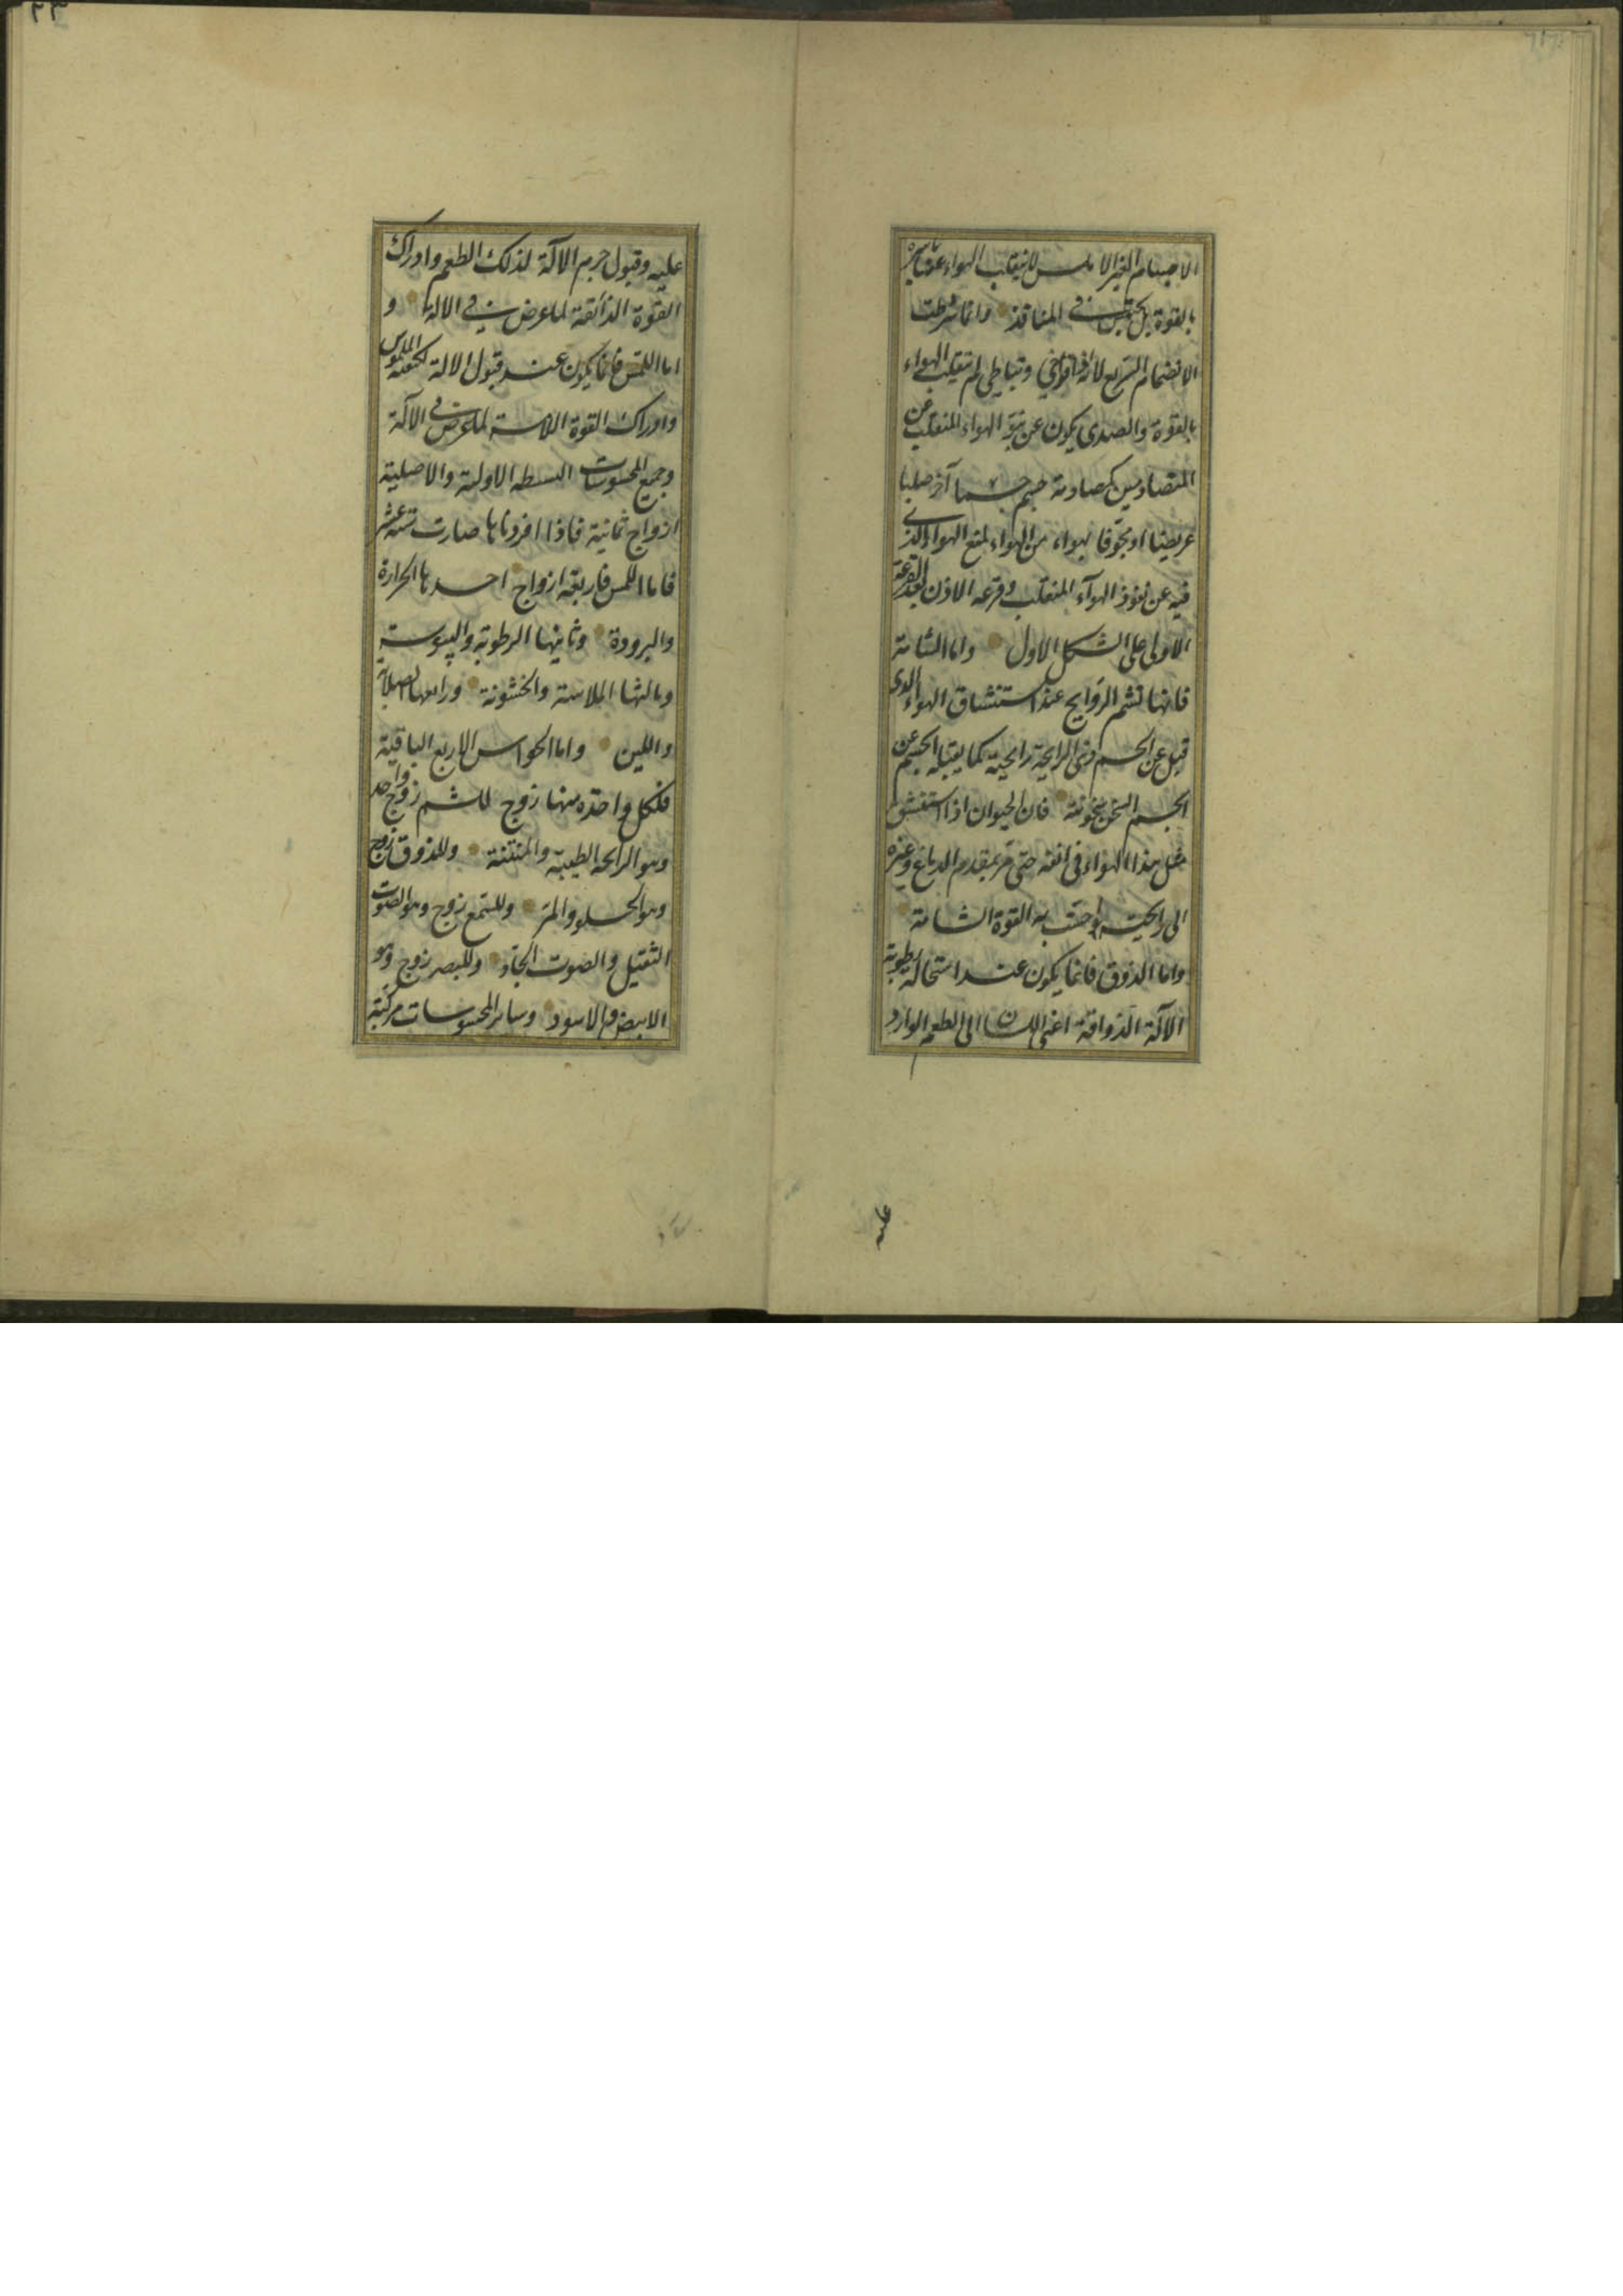 الاجسام الغير الاملس لا ينقلب الهواء عنها باسره
بالقوة بل يحتقن في المنافذ وانما شرطت
الانضمام السريع لانه اذا تراخى وتباطى لم تنقلب الهواء
بالقوة والصدى يكون عن نبو الهواء المنقلب عن
المتصادمين كمصادمة جسم جسما آخر صلبا
عريضا او مجوفا لهواء من الهواء لمنع الهواء الذى
فيه عن نفوذ الهوآء المنقلب وقرعه الاذن بعد القرعة
الاولى على الشكل الاول واما الشامة
فانها تشم الروايح عند استنشاق الهواء الذى
قبل عن الجسم ذى الرايحة رايحته كما يقبل الجسم عن
الجسم السخن سخونته فان الحيوان اذا استنشق
مثل هذا الهواء فى انفه حتى مر بمقدم الدماغ وغيره
الى رايحته احست به القوة الشامة
واما الذوق فانما يكون عند استحالة رطوبة
الآلة الذواقة اعنى اللسان الى الطعم الوارد
عليه
٢٣
عليه وقبول جرم الآلة لذلك الطعم وادراك
القوة الذائقة لما عرض في الالة و
اما اللمس فانما يكون عند قبول الالة لكيفية الملموس
وادراك القوة اللامسة لما عرض فى الآلة
وجميع المحسوسات البسيطة الاولية والاصلية
ازواج ثمانية فاذا افردناها صارت ستة عشر
فاما اللمس فاربعة ازواج احدها الحرارة
والبرودة وثانيها الرطوبة واليبوسة
وثالثها الملاسة والخشونة ورابعها الصلابة
واللين واما الحواس الاربع الباقية
فلكل واحدة منها زوج للشم زوج واحد
وهو الرائحة الطيبة والمنتنة وللذوق زوج
وهو الحلو والمر وللسمع زوج وهو الصوت
الثقيل والصوت الحاد وللبصر زوج وهو
الابيض والاسود وسائر المحسوسات مركبة